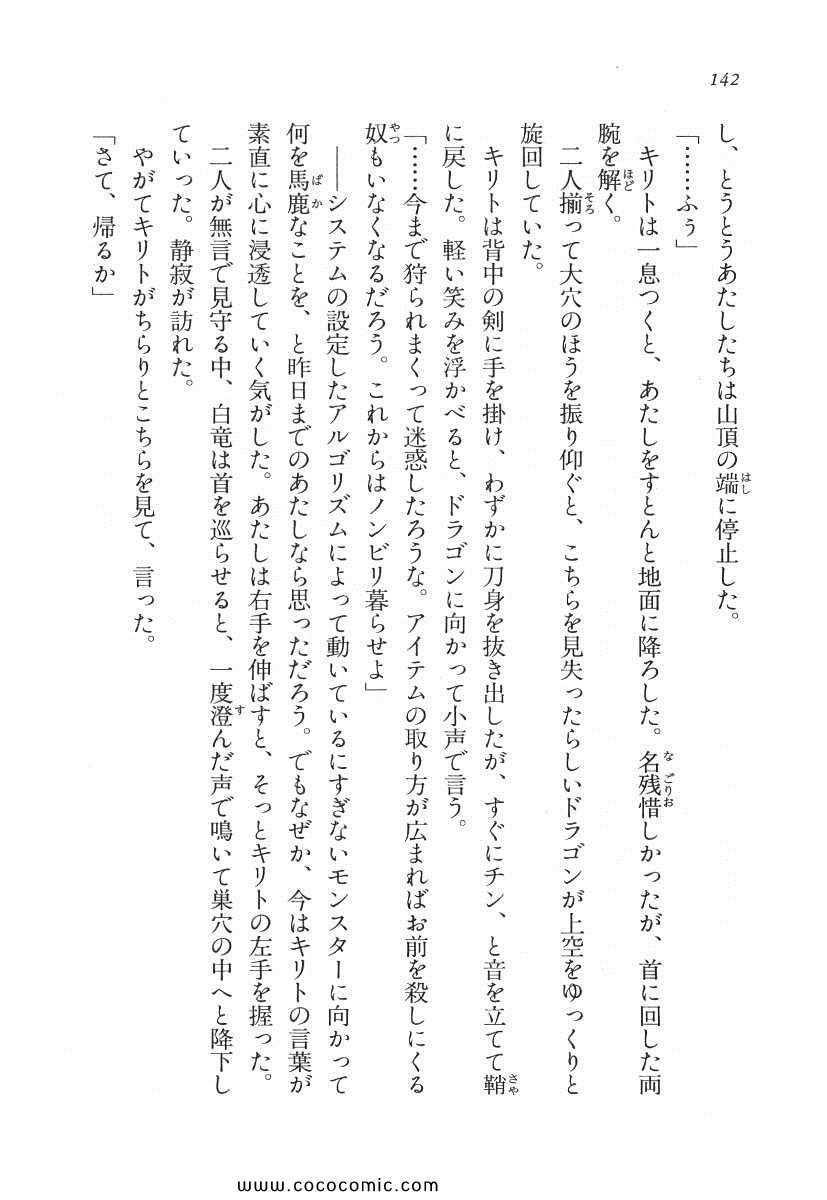 142
し、とうとうあたしたちは山頂の端に停止した。
「……ふう」
キリトは一息つくと、あたしをすとんと地面に降ろした。名残惜しかったが、首に回した両
腕を解く。
二人揃って大穴のほうを振り仰ぐと、こちらを見失ったらしいドラゴンが上空をゆっくりと
旋回していた。
キリトは背中の剣に手を掛け、わずかに刀身を抜き出したが、すぐにチン、と音を立てて鞘
に戻した。軽い笑みを浮かべると、ドラゴンに向かって小声で言う。
「……今まで狩られまくって迷惑したろうな。アイテムの取り方が広まればお前を殺しにくる
奴もいなくなるだろう。これからはノンビリ暮らせよ」
――システムの設定したアルゴリズムによって動いているにすぎないモンスターに向かって
何を馬鹿なことを、と昨日までのあたしなら思っただろう。でもなぜか、今はキリトの言葉が
素直に心に浸透していく気がした。あたしは右手を伸ばすと、そっとキリトの左手を握った。
二人が無言で見守る中、白竜は首を巡らせると、一度澄んだ声で鳴いて巣穴の中へと降下し
ていった。静寂が訪れた。
やがてキリトがちらりとこちらを見て、言った。
「さて、帰るか」
www.cococomic.com/